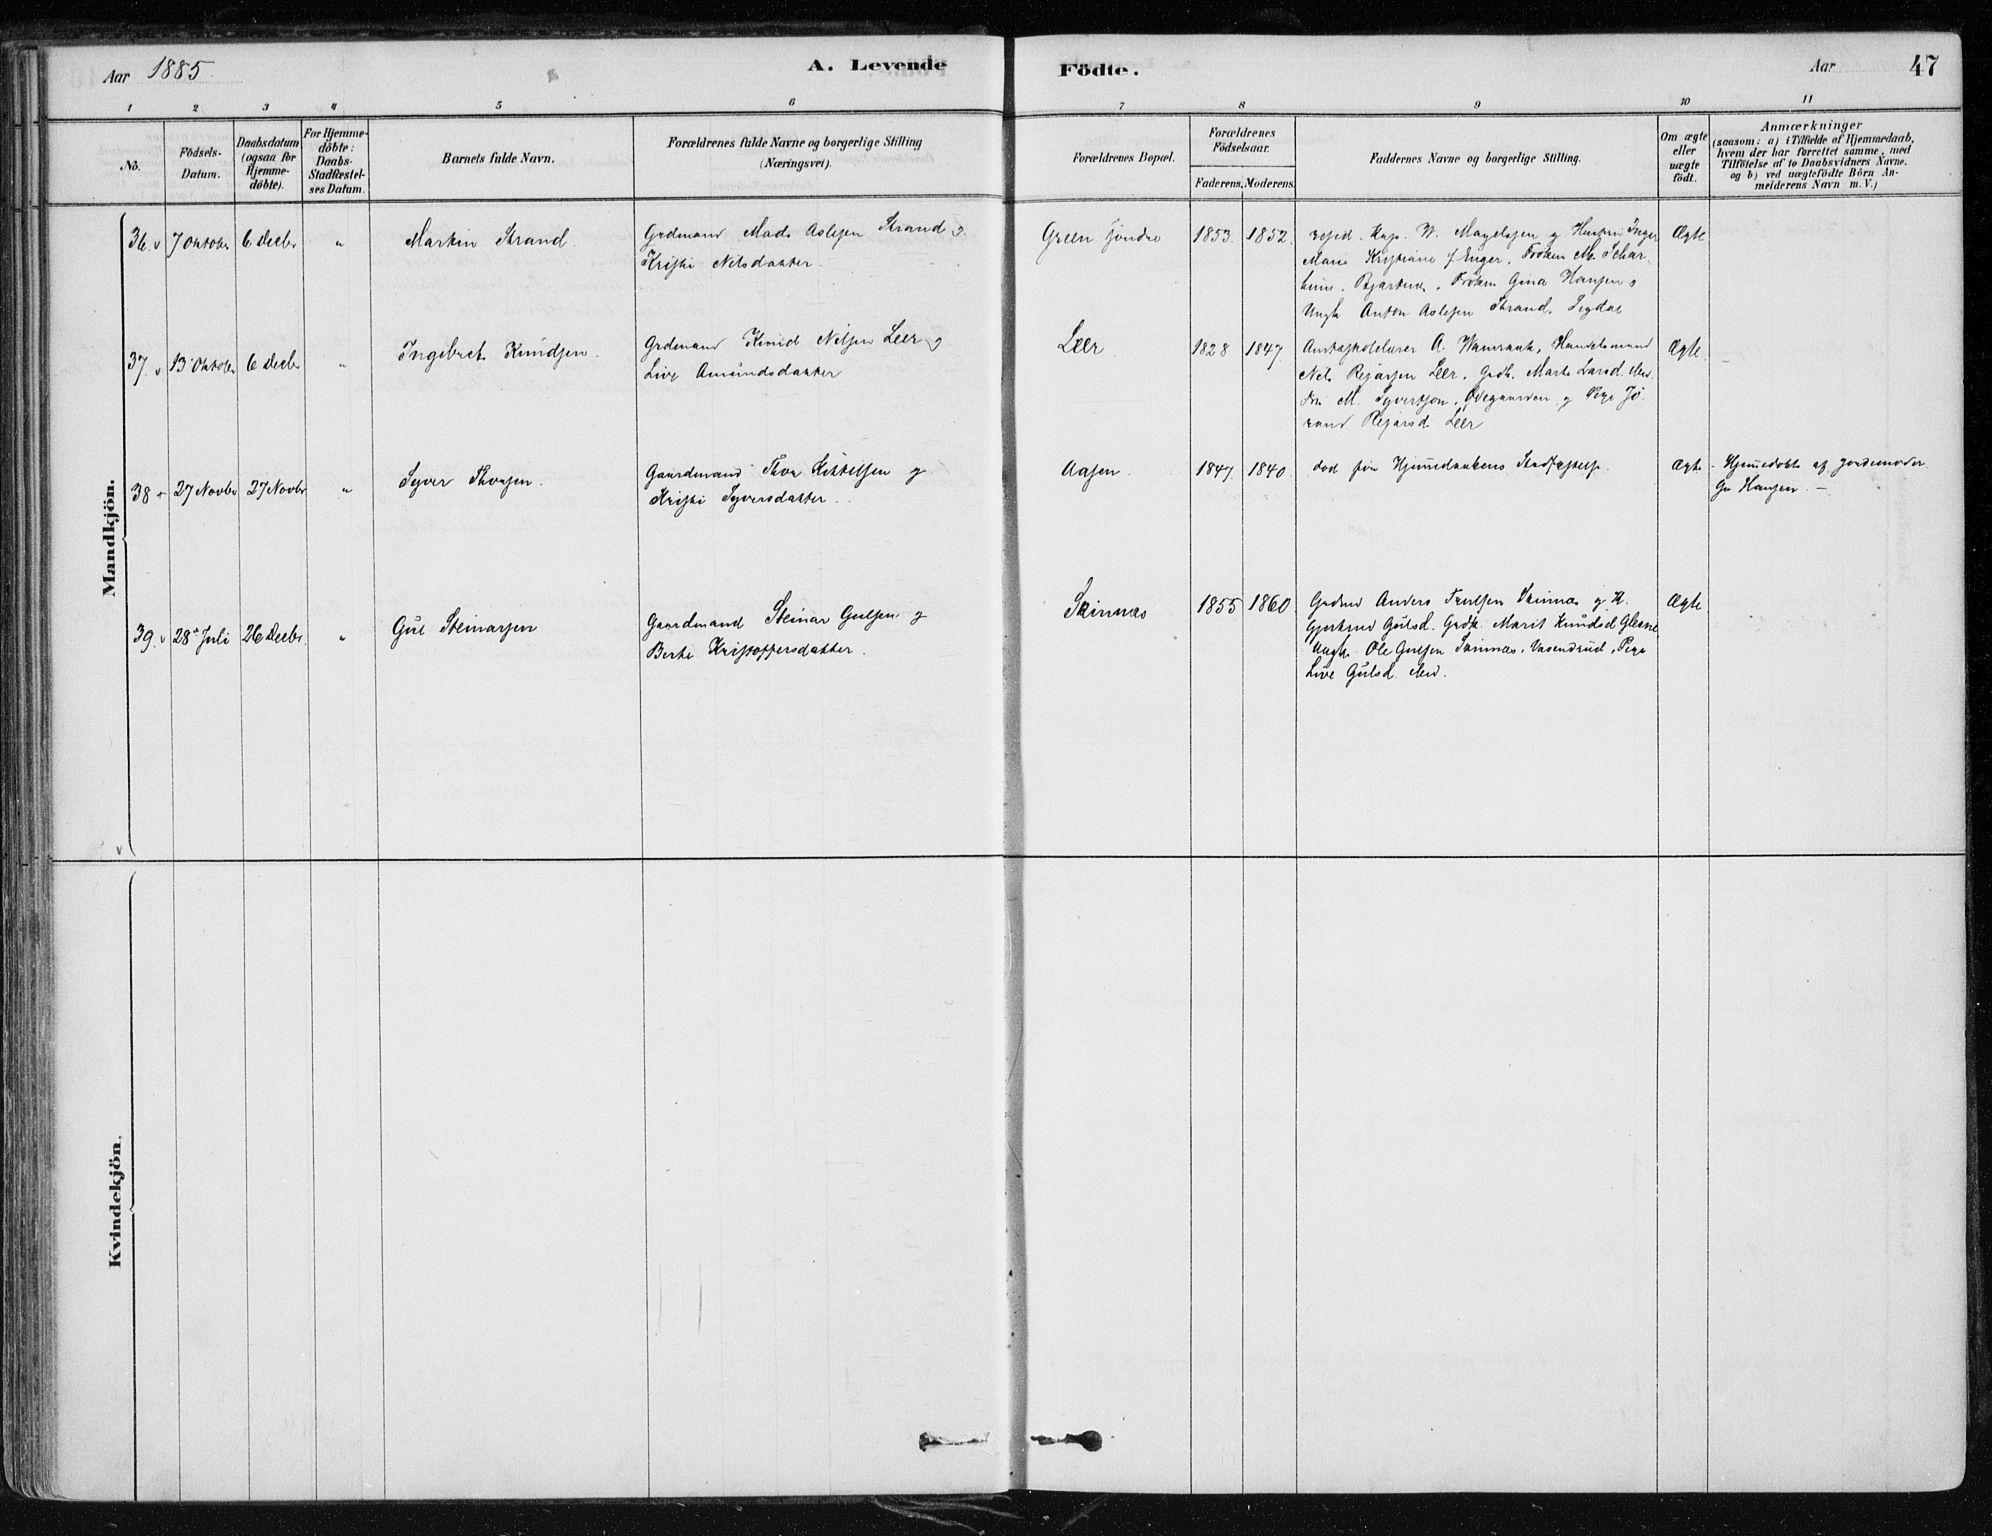 Aar 1885.
A. Levende
Födte.
Aar
47
1 2 3 4 5 6 7 8 9 10 11
No.
Födsels-
Datum.
Daabsdatum
(ogsaa for
Hjemme-
döbte).
For Hjemme-
döbte:
Daabs-
Stadfæstel-
ses Datum.
Barnets fulde Navn.
Forældrenes fulde Navne og borgerlige Stilling
(Næringsvei).
Forældrenes Bopæl.
Forældrenes
Födselsaar.
Faderens. Moderens.
Faddernes Navne og borgerlige Stilling.
Om ægte
eller
uægte
födt.
Anmærkninger
(saasom: a) i Tilfælde af Hjemmedaab,
hvem der har forrettet samme, med
Tilföielse af to Daabsvidners Navne.
og b) ved uægtefödte Börn An-
meiderens Navn m. V.)
Mandkjön.
36. 7 Oktober 6 Decbr " Martin Strand.
Grdmand Mads Aslesen Strand og
Kristi Nilsdatter.
Green Söndre 1853. 1852.
resid. Kap. W. Magelssen og Hustru Inger
Marie Kristiane f Enger, Fröken M. Schar-
. Fröken Gina Hansen og
Ungk Anton Aslesen Strand, Sigdal
Ægte
37. 13 Oktober 6 Decbr " Ingebret Knudsen.
Grdmand Knud Nilsen Leer og
Live Amundsdatter
Leer 1828 1847
A. Wamraak, Handelsmand
Nels Reiarsen Leer, Grdk. Marte Larsd. ibid.
Fru M. Syvertsen, Ödegaarden og Pige Jö-
rand Reiarsd Leer
Ægte
38 27 Novbr 27 Novbr " Syver Thorsen.
Gaardmand Thor Kittilsen og
Kristi Syversdatter.
Aasen. 1847. 1840
död för Hjemmedaabens Stadfæstelse.
Ægte
Hjemmedöbt af Jordemoder
Gu Hansen. —
39. 28de Juli 26 Decbr. " Gul Steinarsen
Gaardmand Steinar Gulsen og
Berte Kristoffersdatter.
Skinnæs 1855 1860
Grdmd Anders Trulsen Skinnæs og K.
Gjertrud Gulsd. Grdk. Marit Knudsd Glesne
Ungk. Ole Gulsen Skinnæs, Vasendrud, Pige
Live Gulsd. ibid.
Ægte
Kvindekjön.